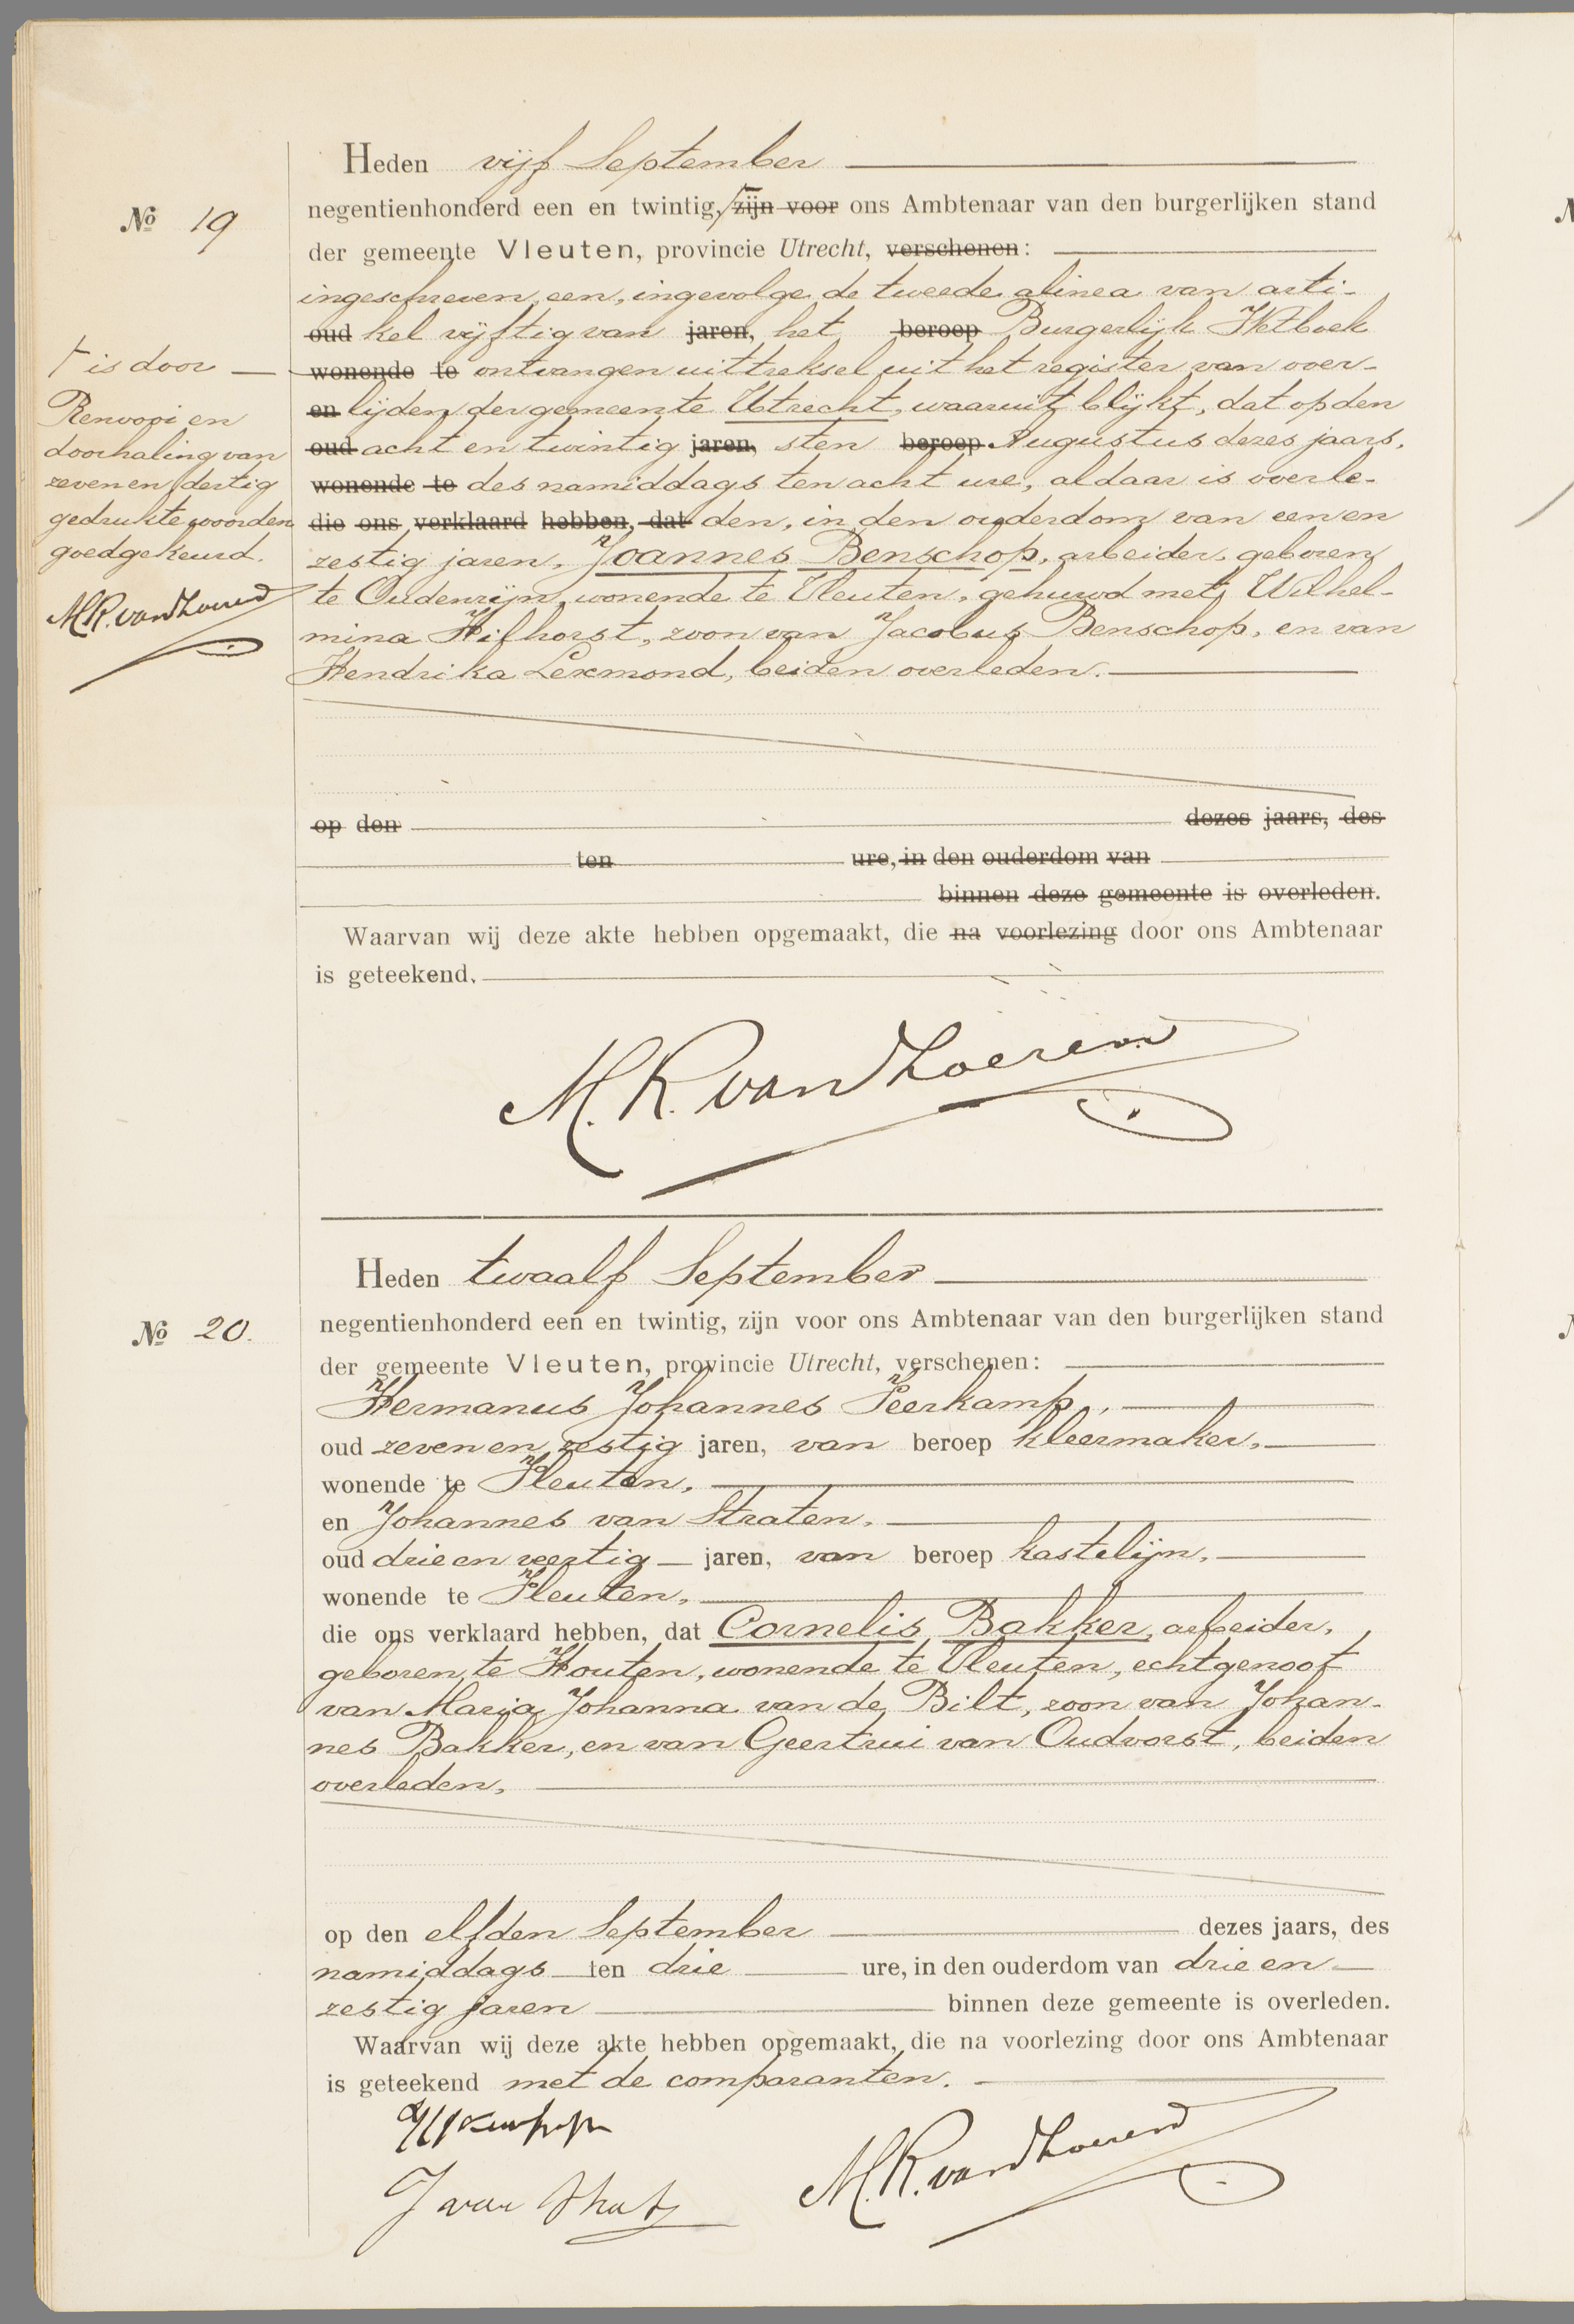 Heden vijf September
No 19
negentienhonderd een en twintig, zijn voor ons Ambtenaar van den burgerlijken stand
der gemeente Vleuten, provincie Utrecht, verschenen:
ingeschreven een, ingevolge de tweede alinea van arti-
oud kel vijftig van jaren, het beroep Burgerlijk Wetboek
wonende te ontvangen uittreksel uit het register van over-
en lijden der gemeente Utrecht, waaruit blijkt, dat op den
oud acht en twintig jaren, sten beroep Augustus dezes jaars,
wonende te des namiddags ten acht ure, aldaar is overle-
die ons verklaard hebben, dat den, in den ouderdom van een en
zestig jaren, Joannes Benschop, arbeider, geboren
te Oudenrijn, wonende te Vleuten, gehuwd met Wilhel-
mina Hilhorst, zoon van Jacobus Benschop, en van
Hendrika Lexmond, beiden overleden.
is door
Renvooi en
doorhaling van
zeven en dertig
gedrukte woorden
goedgekeurd.
op den dezes jaars, des
ten ure, in den ouderdom van
binnen deze gemeente is overleden.
Waarvan wij deze akte hebben opgemaakt, die na voorlezing door ons Ambtenaar
is geteekend.
Heden twaalf September
No 20.
negentienhonderd een en twintig, zijn voor ons Ambtenaar van den burgerlijken stand
der gemeente Vleuten, provincie Utrecht, verschenen:
Hermanus Johannes Peerkamp,
oud zeven en zestig jaren, van beroep kleermaker,
wonende te Vleuten,
en Johannes van Straten,
oud drie en veertig jaren, van beroep kastelijn,
wonende te Vleuten,
die ons verklaard hebben, dat Cornelis Bakker, arbeider,
geboren te Houten, wonende te Vleuten, echtgenoot
van Maria Johanna van de Bilt, zoon van Johan-
nes Bakker, en van Geertrui van Oudvorst, beiden
overleden,
op den elfden September dezes jaars, des
namiddags ten drie ure, in den ouderdom van drie en
zestig jaren binnen deze gemeente is overleden.
Waarvan wij deze akte hebben opgemaakt, die na voorlezing door ons Ambtenaar
is geteekend met de comparanten.
J van Strat